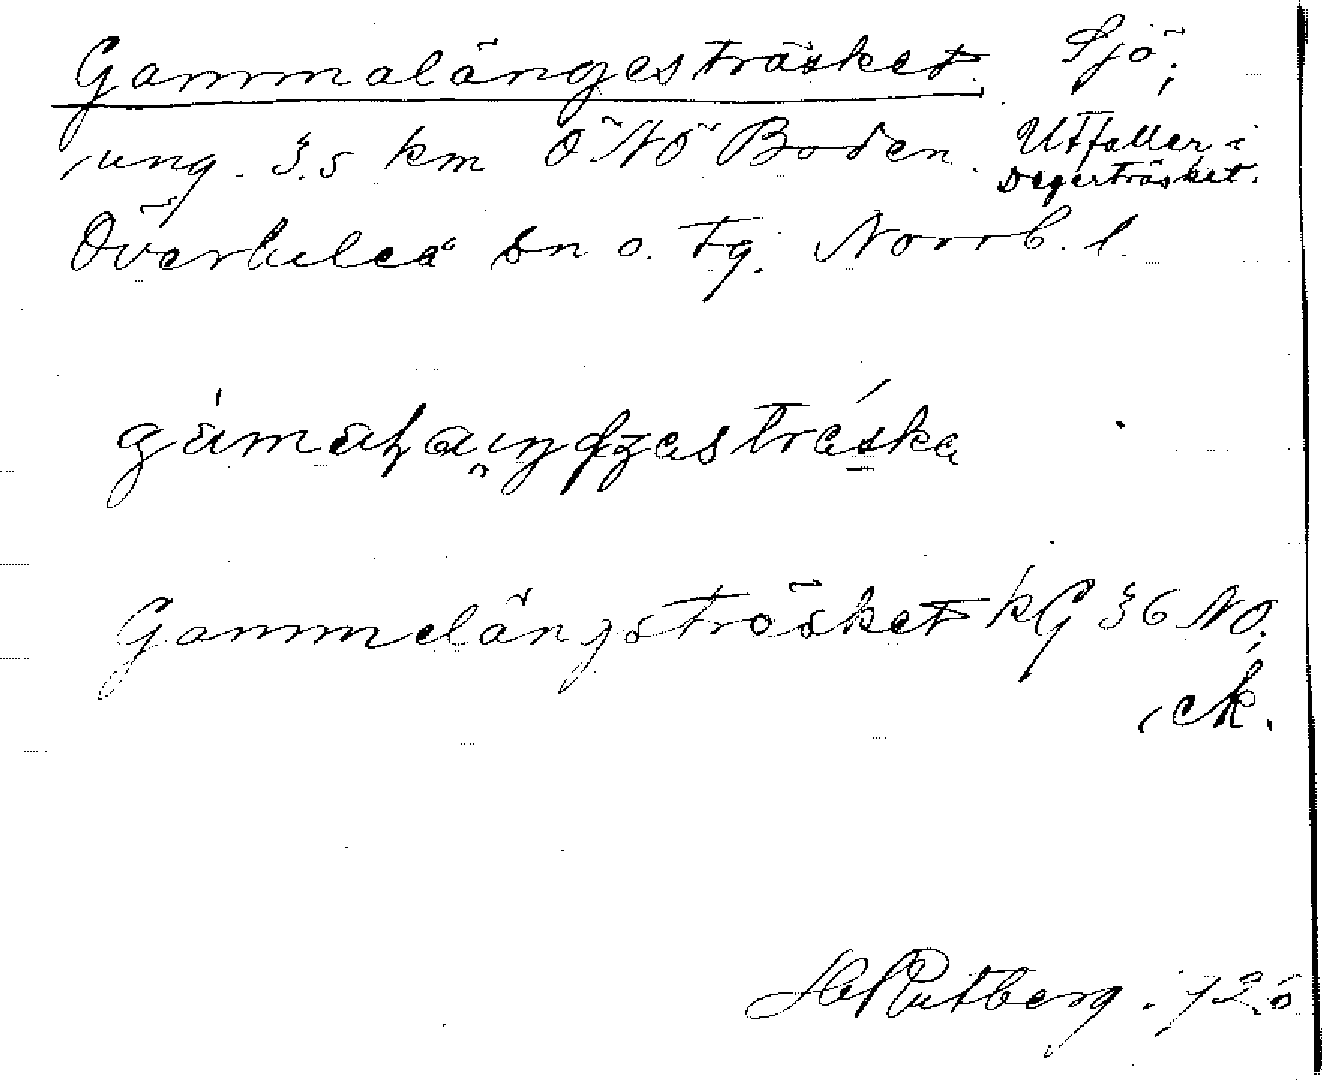 Gammalängesträsket. Sjö;
ung. 3.5 km ÖNÖ Boden. Utfaller i
Degerträsket.
Överluleå sn o. tg. Norrb. l.
Gammelängsträsket kG 36 NO;
ck.
H Rutberg.